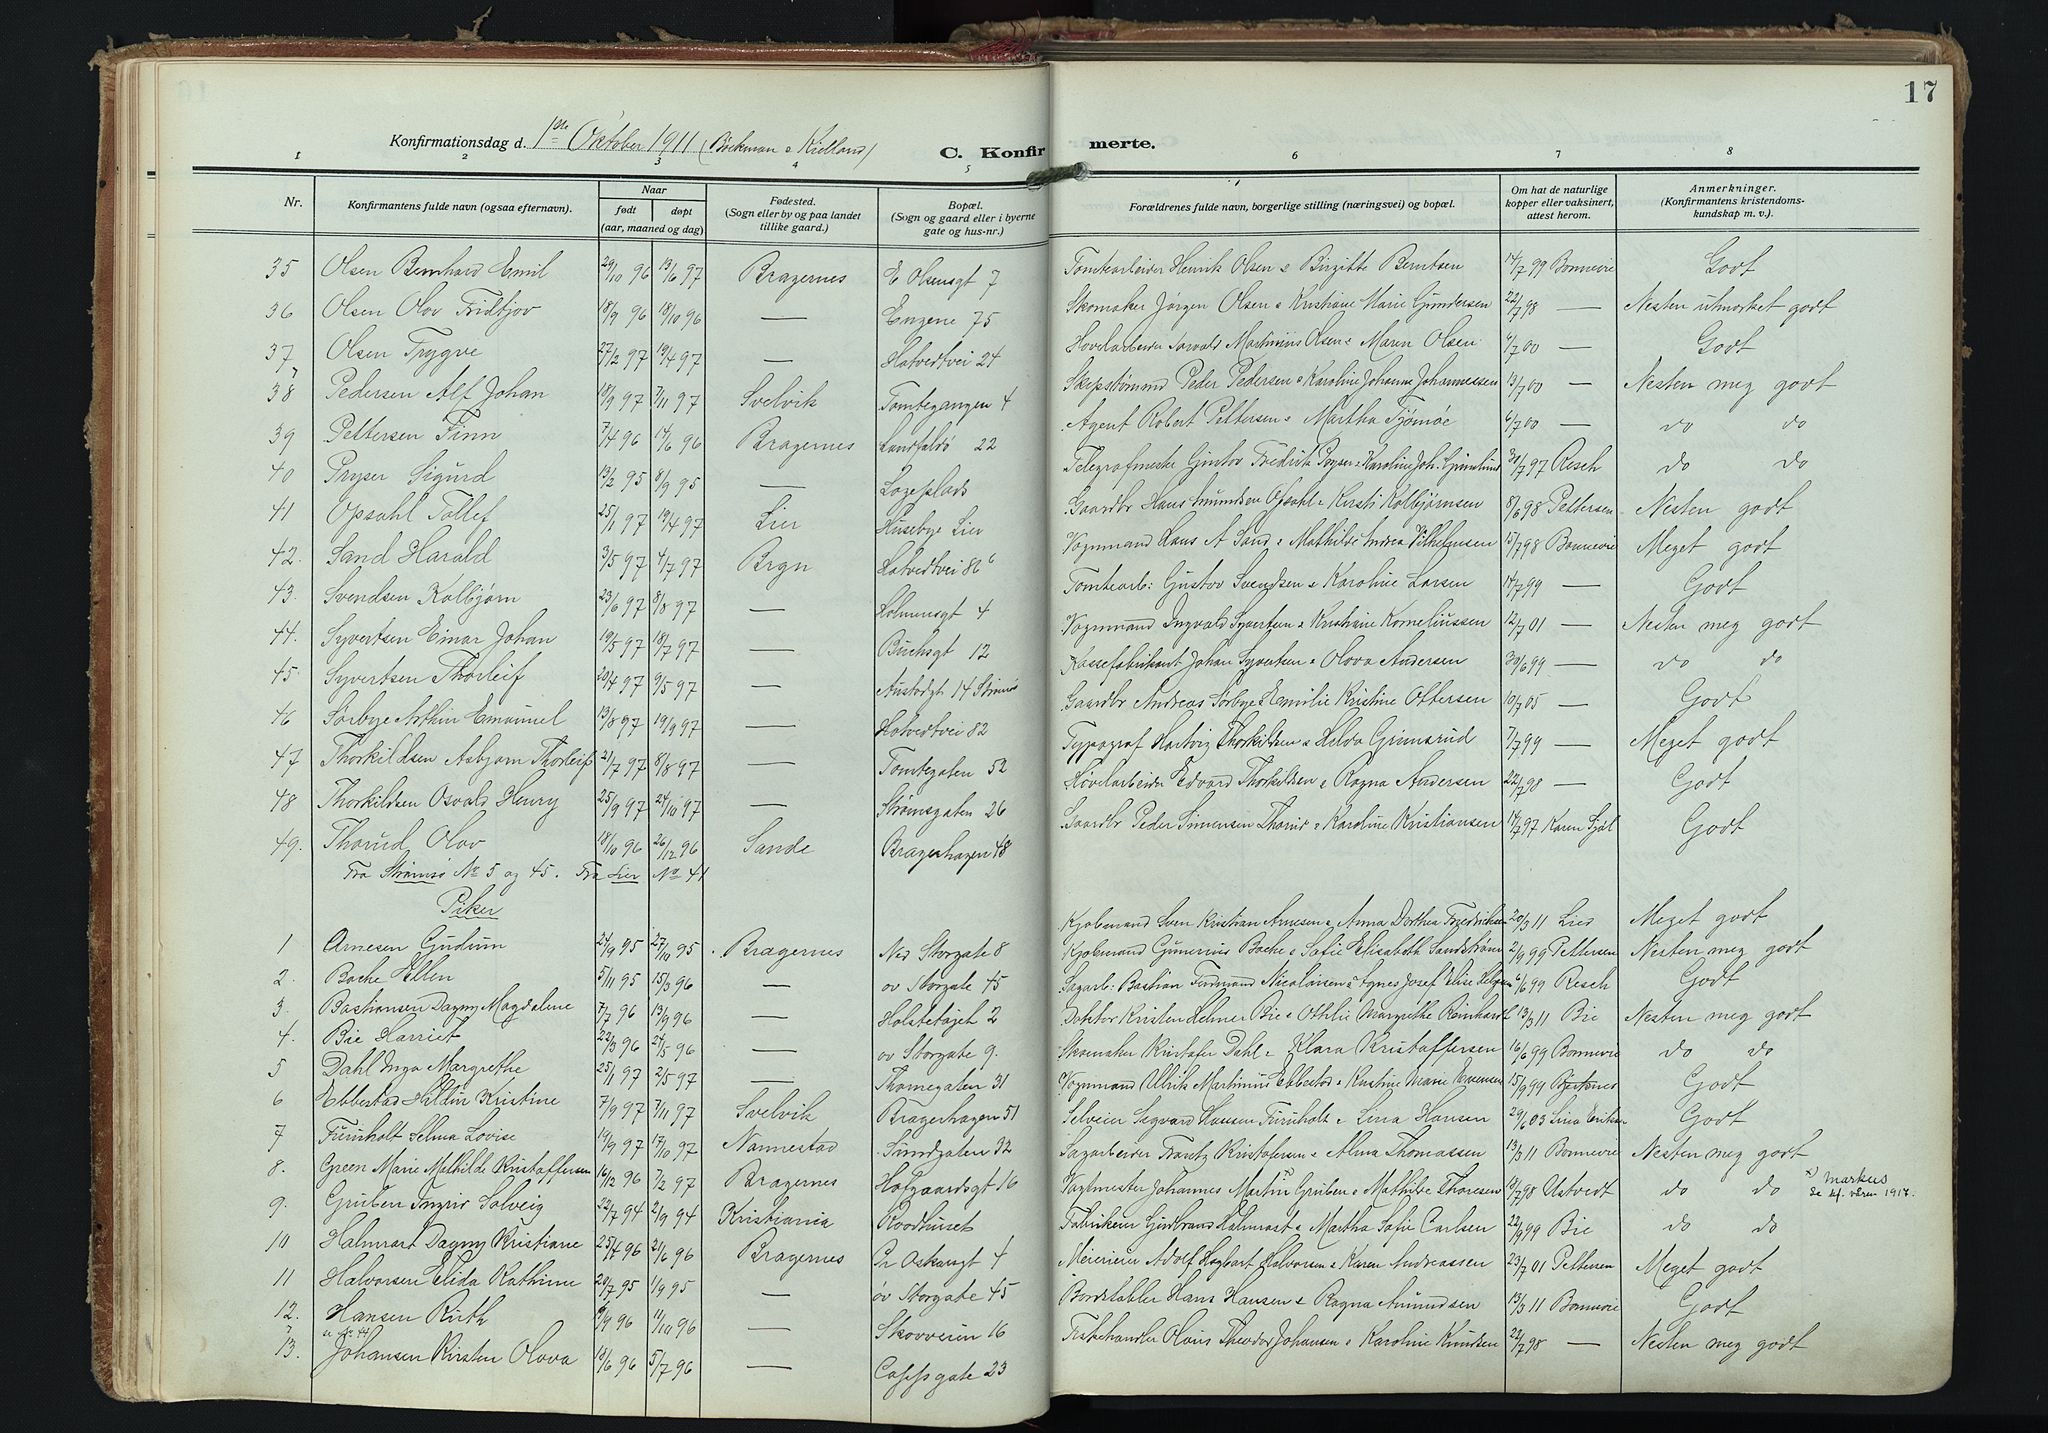 17
Konfirmationsdag d. 1ste Oktober 1911 (Bøckman & Kielland)
C. Konfirmerte.
1 2 3 4 5 6 7 8
Nr. Konfirmantens fulde navn (ogsaa efternavn). Naar født døpt (aar, maaned og dag) Fødested. (Sogn eller by og paa landet tillike gaard.) Bopæl. (Sogn og gaard eller i byerne gate og hus-nr.) Forældrenes fulde navn, borgerlige stilling (næringsvei) og bopæl. Om hat de naturlige kopper eller vaksinert, attest herom. Anmerkninger. (Konfirmantens kristendomskundskap m. v.).
35 Olsen Bernhard Emil 29/10 96 13/6 97 Bragernes E Olsensgt 7 Tomtearbeider Henrik Olsen & Birgitte Berntsen 14/7 99 Bonnevie Godt
36 Olsen Olav Fridtjov 18/9 96 18/10 96 — Engene 75 Skomaker Jørgen Olsen & Kristiane Marie Gundersen 22/7 98 — Nesten utmerket godt
37 Olsen Trygve 27/2 97 19/4 97 — Hotvedtvei 24 Høvelarbeider Martinius Olsen & Maren Olsen 4/7 00 — Godt
38 Pedersen Alf Johan 18/9 97 7/11 97 Svelvik Tomtegangen 4 Peder Pedersen & Karoline Johanne Johannessen 13/7 00 — Nesten meg godt
39 Pettersen Finn 7/4 96 14/6 96 Bragernes Landfaldø 22 Agent Robert Pettersen & Martha Tjømøe 6/7 00 — do do
40 Pryser Sigurd 13/2 95 8/9 95 — Løzeplads Telegrafmester Gustav Fredrik Pryser & Karoline Joh. 30/7 97 Resch do do
41 Opsahl Tollef 25/1 97 19/4 97 Lier Husebye Lier Gaardbr Hans Amundsen Opsahl & Kirsti Kolbjørnsen 8/6 98 Pettersen Nesten godt
42. Sand Harald 3/5 97 4/7 97 Brgn Hotvedtvei 86 b Vognmand Hans A Sand & Mathilde Andrea Vilhelmsen 15/7 98 Bonnevie Meget godt
43. Svendsen Kolbjørn 23/6 97 8/8 97 — Holmensgt 4 Tomtearb: Gustav Svendsen & Karoline Larsen 14/7 99 — Godt
44. Syvertsen Einar Johan 19/5 97 18/7 97 — Buchsgt 12 Vognmand Ingvald Syvertsen & Kristiane Korneliussen 12/7 01 — Nesten meg godt
45. Syvertsen Thorleif 20/4 97 9/5 97 — 14 Strømsø Kassefabrikant Johan Syvertsen & Olava Andersen 30/6 99 — do do
46 Sørbye Arthur Emanuel 13/8 97 19/9 97 — Hotvedtvei 82 Gaardbr Andreas Sørbye & Emilie Kristine Ottersen 10/7 05 — Godt
47 Thorkildsen Asbjørn Thorleif 21/7 97 8/8 97 — Tomtegaten 52 Typograf Hartvig Thorkildsen & Hilda Grimsrud 7/7 99 — Meget godt
48 Thorkildsen Osvald Henry 25/9 97 24/10 97 — Strømsgaten 26 Høvelarbeider Edvard Thorkildsen & Ragna Andersen 22/7 98 — Godt
49. Thorud Olav 18/10 96 26/12 96 Sande Bragerhagen 48 Gaardbr Peder Simensen Thorud & Karoline Kristiansen 14/7 97 Karen Sjøl Godt
Fra Strømsø No 5 og 45. Fra Lier No 41
Piker
1 Arnesen Gudrun 24/9 95 27/10 95 Bragernes Ned Storgate 8 Kjøbmand Sven Kristian Arnesen & Anna Dorthea Fredriksen 20/3 11 Lier Meget godt
2. Bache Ellen 5/11 95 15/3 96 — øv Storgate 45 Kjøbmand Gunerius Bache & Sofie Elisabeth Sandstrøm 2/9 99 Pettersen Nesten meg godt
3. Bastiansen Dagny Magdalene 7/7 96 13/9 96 — Holstetøjet 2 Sagarb: Bastian Ferdinand Nicolaisen & Agnes Josef Elise 6/6 99 Resch Godt
4. Bie Harriet 22/3 96 24/5 96 — øv Storgate 9. Doktor Kristen Helmer Bie & Othlie Margrethe Reinhardt 13/3 11 Bie Nesten meg godt
5 Dahl Inga Margrethe 25/1 97 2/5 97 — Thornegaten 31 Skomaker Kristofer Dahl & Klara Kristoffersen 16/6 99 Bonnevie do do
6 Ebbestad Hildur Kristine 7/9 97 7/11 97 Svelvik Bragerhagen 51 Vognmand Ullrik Martinius Ebbestad & Kristine Marie Evensen 15/9 99 Godt
7 Furuholt Selma Lovise 19/9 97 17/10 97 Nannestad Sundgaten 32 Selveier Sigvard Hansen Furuholt & Lina Hansen 29/6 03 Lina Eriksen Godt
8. Green Marie Mathilde Kristoffersen 16/12 96 7/2 97 Bragernes Hofgaardsgt 16 Sagarbeider Frantz Kristofersen & Alma Thomassen 13/3 11 Bonnevie Nesten meg godt
9. Gruben Ingrid Solveig 22/7 94 2/9 94 Kristiania Raadhuset Vagtmester Johannes Martin x) Gruben & Mathilde Thoresen 8/7 98 Ustvedt do do x) Markus
10 Halmrast Dagny Kristiane 25/4 96 21/6 96 Bragernes Pr Oskarsgt 4 Fabrikeier Gudbrand Halmrast & Martha Sofie Carlsen 22/9 99 Bie do do
11 Halvorsen Elida Kathrine 20/7 95 1/9 95 — øv Storgate 45 Meierieier Adolf Hagbart Halvorsen & Karen Andreassen 23/7 01 Pettersen Meget godt
12. Hansen Ruth 9/9 96 11/10 96 — Skovveien 16 Bordstabler Hans Hansen & Ragna Amundsen 13/3 11 Bonnevie Godt
13. Johansen Kirsten Olava 18/6 96 5/7 96 — Cappsgate 23 Fiskehandler Olaus Theodor Johansen & Karoline Knudsen 22/7 98 — Nesten meg godt